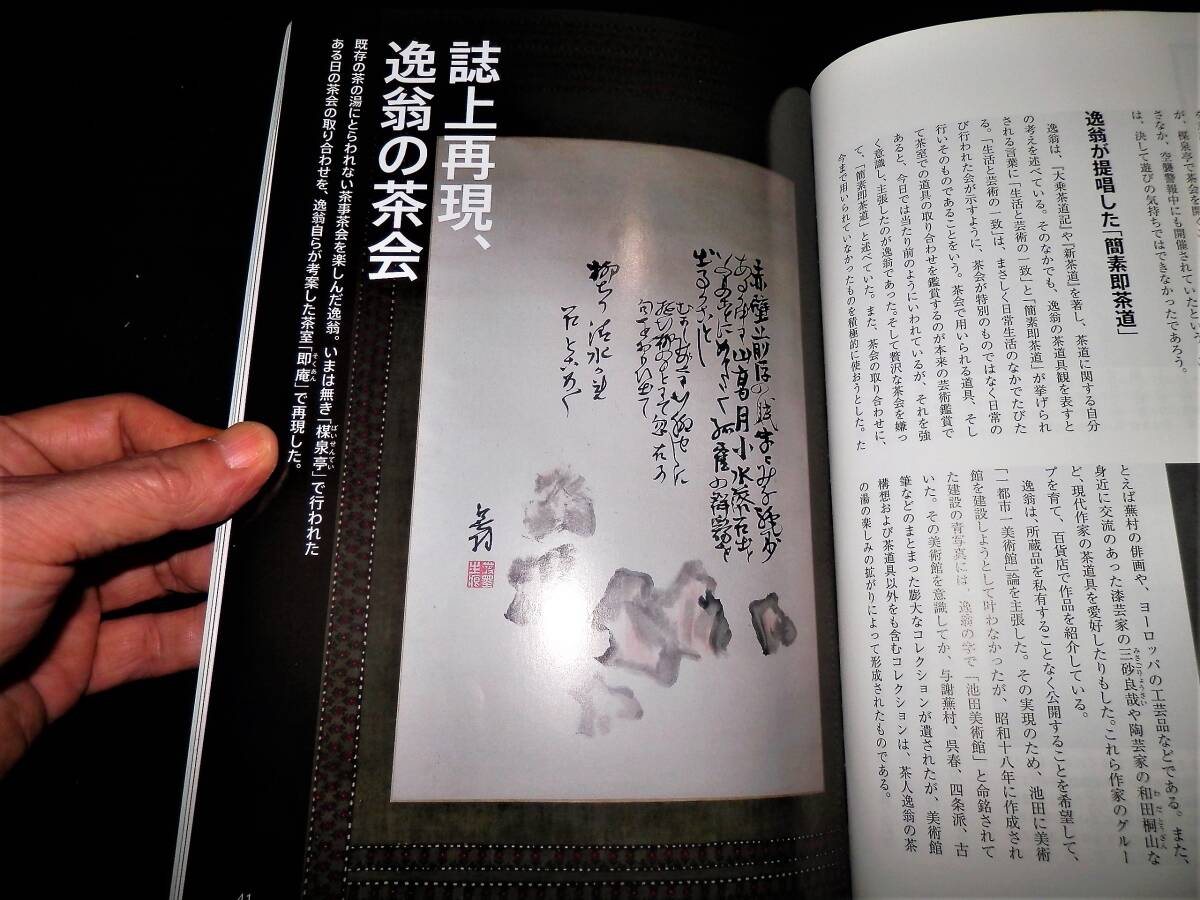 が、楳泉亭で茶会を開
さなか、空襲警報中にも開催されていたという
は、決して遊びの気持ちではできなかったであろう。
逸翁が提唱した「簡素即茶道」
逸翁は、『大乗茶道記』や『新茶道』を著し、茶道に関する自分
の考えを述べている。そのなかでも、逸翁の茶道具観を表すと
される言葉に「生活と芸術の一致」と「簡素即茶道」が挙げられ
る。「生活と芸術の一致」は、まさしく日常生活のなかでたびた
び行われた会が示すように、茶会が特別のものではなく日常の
行いそのものであることをいう。茶会で用いられる道具、そし
て茶室での道具の取り合わせを鑑賞するのが本来の芸術鑑賞で
あると、今日では当たり前のようにいわれているが、それを強
く意識し、主張したのが逸翁であった。そして贅沢な茶会を嫌っ
て、「簡素即茶道」と述べていた。また、茶会の取り合わせに、
今まで用いられていなかったものを積極的に使おうとした。た
とえば蕪村の俳画や、ヨーロッパの工芸品などである。また、
身近に交流のあった漆芸家の三砂良哉や陶芸家の和田桐山な
ど、現代作家の茶道具を愛好したりもした。これら作家のグルー
プを育て、百貨店で作品を紹介している。
逸翁は、所蔵品を私有することなく公開することを希望して、
「一都市一美術館」論を主張した。その実現のため、池田に美術
館を建設しようとして叶わなかったが、昭和十八年に作成され
た建設の青写真には、逸翁の字で「池田美術館」と命銘されて
いた。その美術館を意識してか、与謝蕪村、呉春、四条派、古
筆などのまとまった膨大なコレクションが遺されたが、美術館
構想および茶道具以外をも含むコレクションは、茶人逸翁の茶
の湯の楽しみの拡がりによって形成されたものである。
誌上再現、
逸翁の茶会
既存の茶の湯にとらわれない茶事茶会を楽しんだ逸翁。いまは無き「楳泉亭」で行われた
ある日の茶会の取り合わせを、逸翁自らが考案した茶室「即庵」で再現した。
山高月小水落石出
41